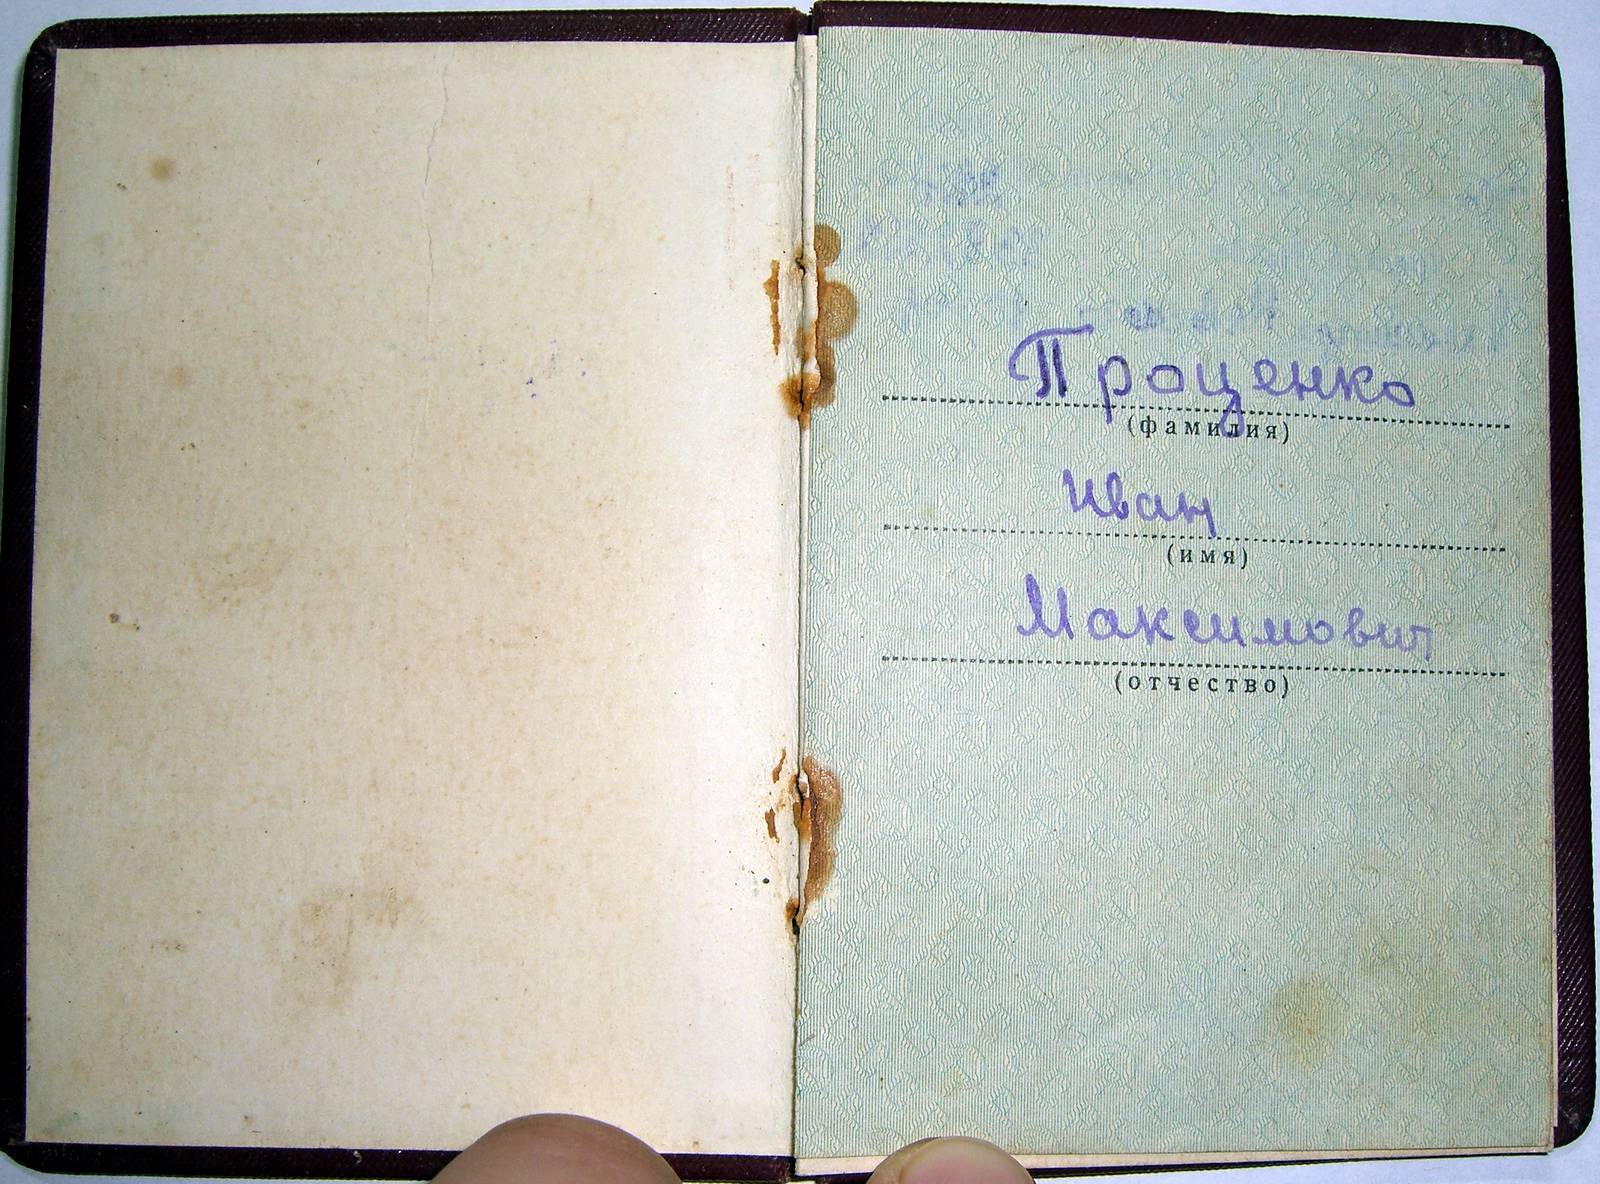 Проценко
(фамилия)
Иван
(имя)
Максимович
(отчество)